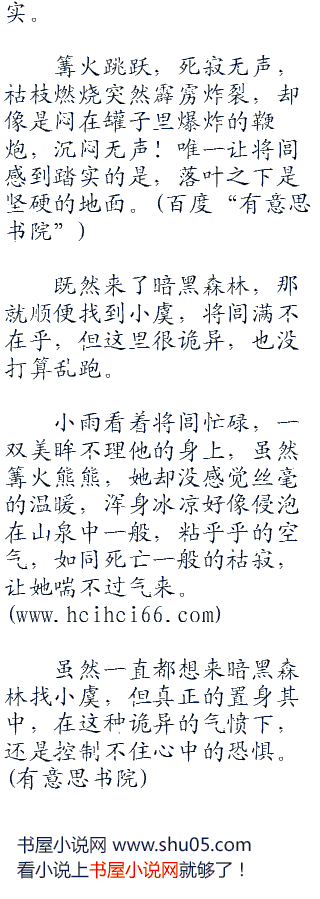 实。
篝火跳跃，死寂无声，
枯枝燃烧突然霹雳炸裂，却
像是闷在罐子里爆炸的鞭
炮，沉闷无声！唯一让将闾
感到踏实的是，落叶之下是
坚硬的地面。(百度“有意思
书院”)
既然来了暗黑森林，那
就顺便找到小虞，将闾满不
在乎，但这里很诡异，也没
打算乱跑。
小雨看着将闾忙碌，一
双美眸不理他的身上，虽然
篝火熊熊，她却没感觉丝毫
的温暖，浑身冰凉好像侵泡
在山泉中一般，粘乎乎的空
气，如同死亡一般的枯寂，
让她喘不过气来。
(www.hcihci66.com)
虽然一直都想来暗黑森
林找小虞，但真正的置身其
中，在这种诡异的气愤下，
还是控制不住心中的恐惧。
(有意思书院)
书屋小说网 www.shu05.com
看小说上书屋小说网就够了！